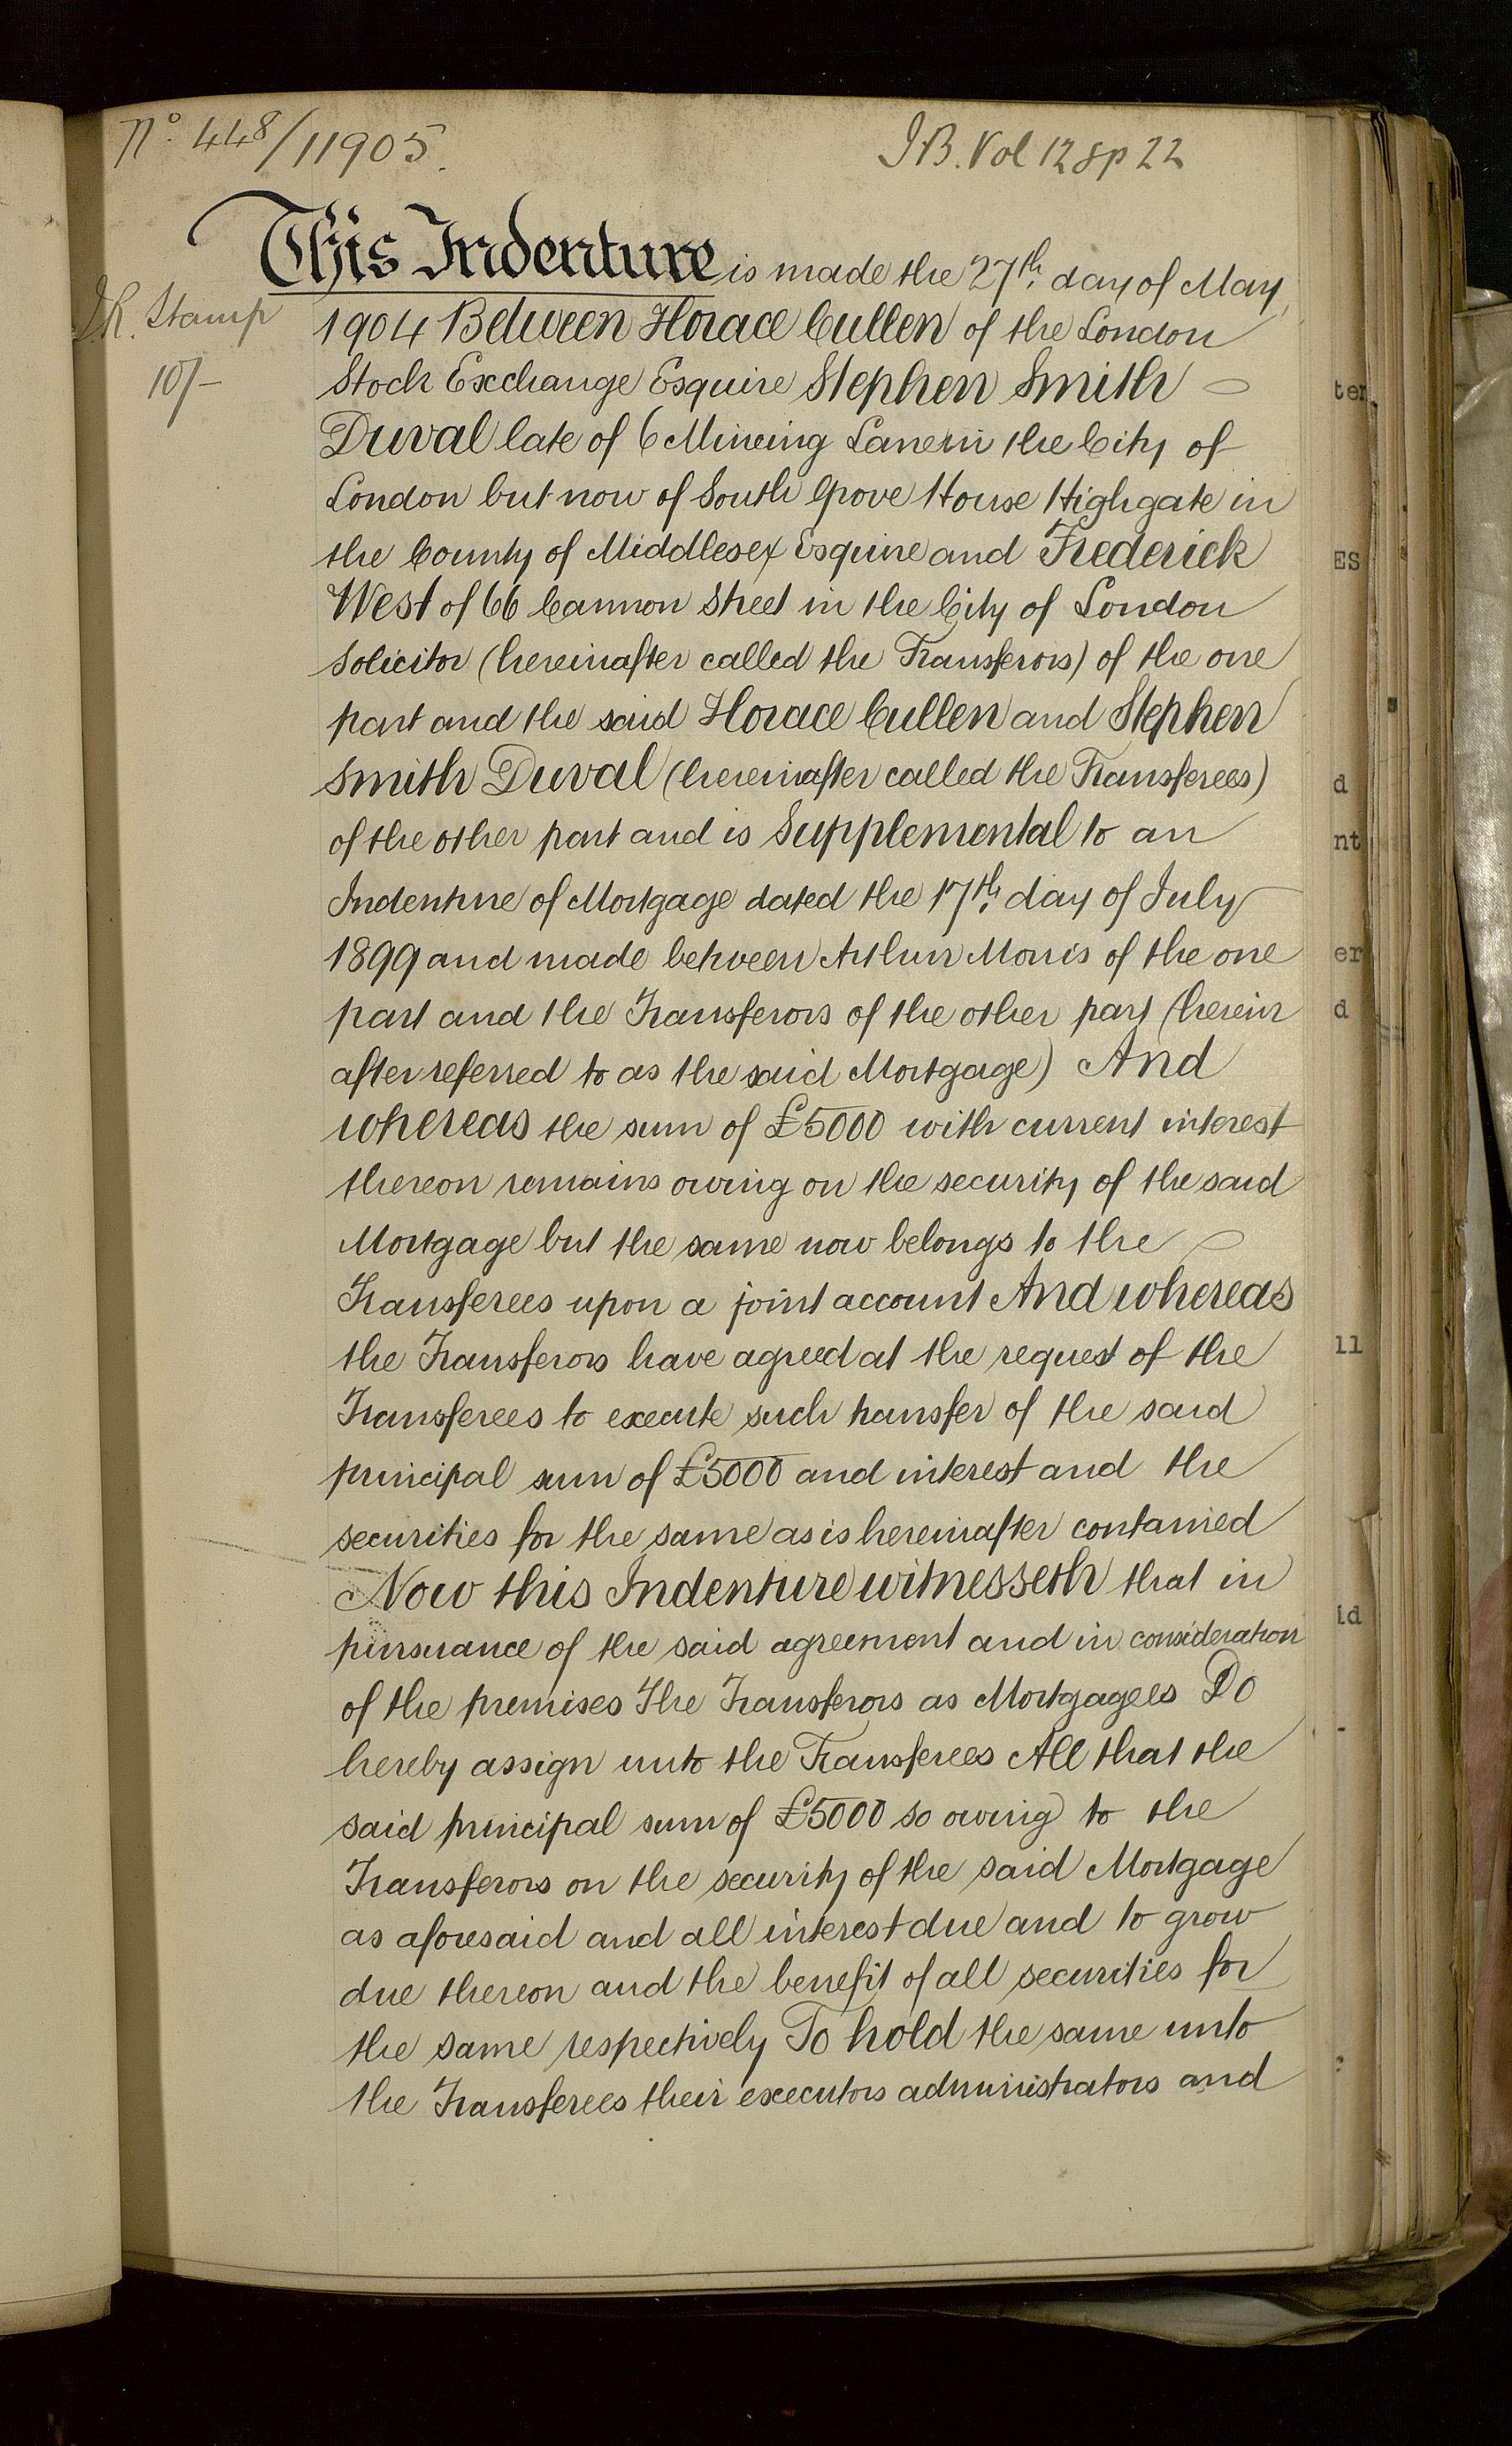 No. 448/11905.
I B. Vol 128 p 22
This Indenture is made the 27th. day of May
I.R. Stamp
10/-
1904 Between Horace Cullen of the London
Stock Exchange Esquire Stephen Smith
Duval late of 6 Mincing Lane in the City of
London but now of South Grove House Highgate in
the County of Middlesex Esquire and Frederick
West of 66 Cannon Street in the City of London
Solicitor (hereinafter called the Transferors) of the one
part and the said Horace Cullen and Stephen
Smith Duval (hereinafter called the Transferees)
of the other part and is Supplemental to an
Indenture of Mortgage dated the 17th. day of July
1899 and made between Arthur Morris of the one
part and the Transferors of the other part (herein
after referred to as the said Mortgage) And
whereas the sum of £5000 with current interest
thereon remains owing on the security of the said
Mortgage but the same now belongs to the
Transferees upon a joint account And whereas
the Transferors have agreed at the request of the
Transferees to execute such transfer of the said
principal sum of £5000 and interest and the
securities for the same as is hereinafter contained
Now this Indenture witnesseth that in
pursuance of the said agreement and in consideration
of the premises The Transferors as Mortgagees Do
hereby assign unto the Transferees All that the
said principal sum of £5000 so owing to the
Transferors on the security of the said Mortgage
as aforesaid and all interest due and to grow
due thereon and the benefit of all securities for
the same respectively To hold the same unto
the Transferees their executors administrators and
ter
ES
d
nt
er
d
ll
id
-